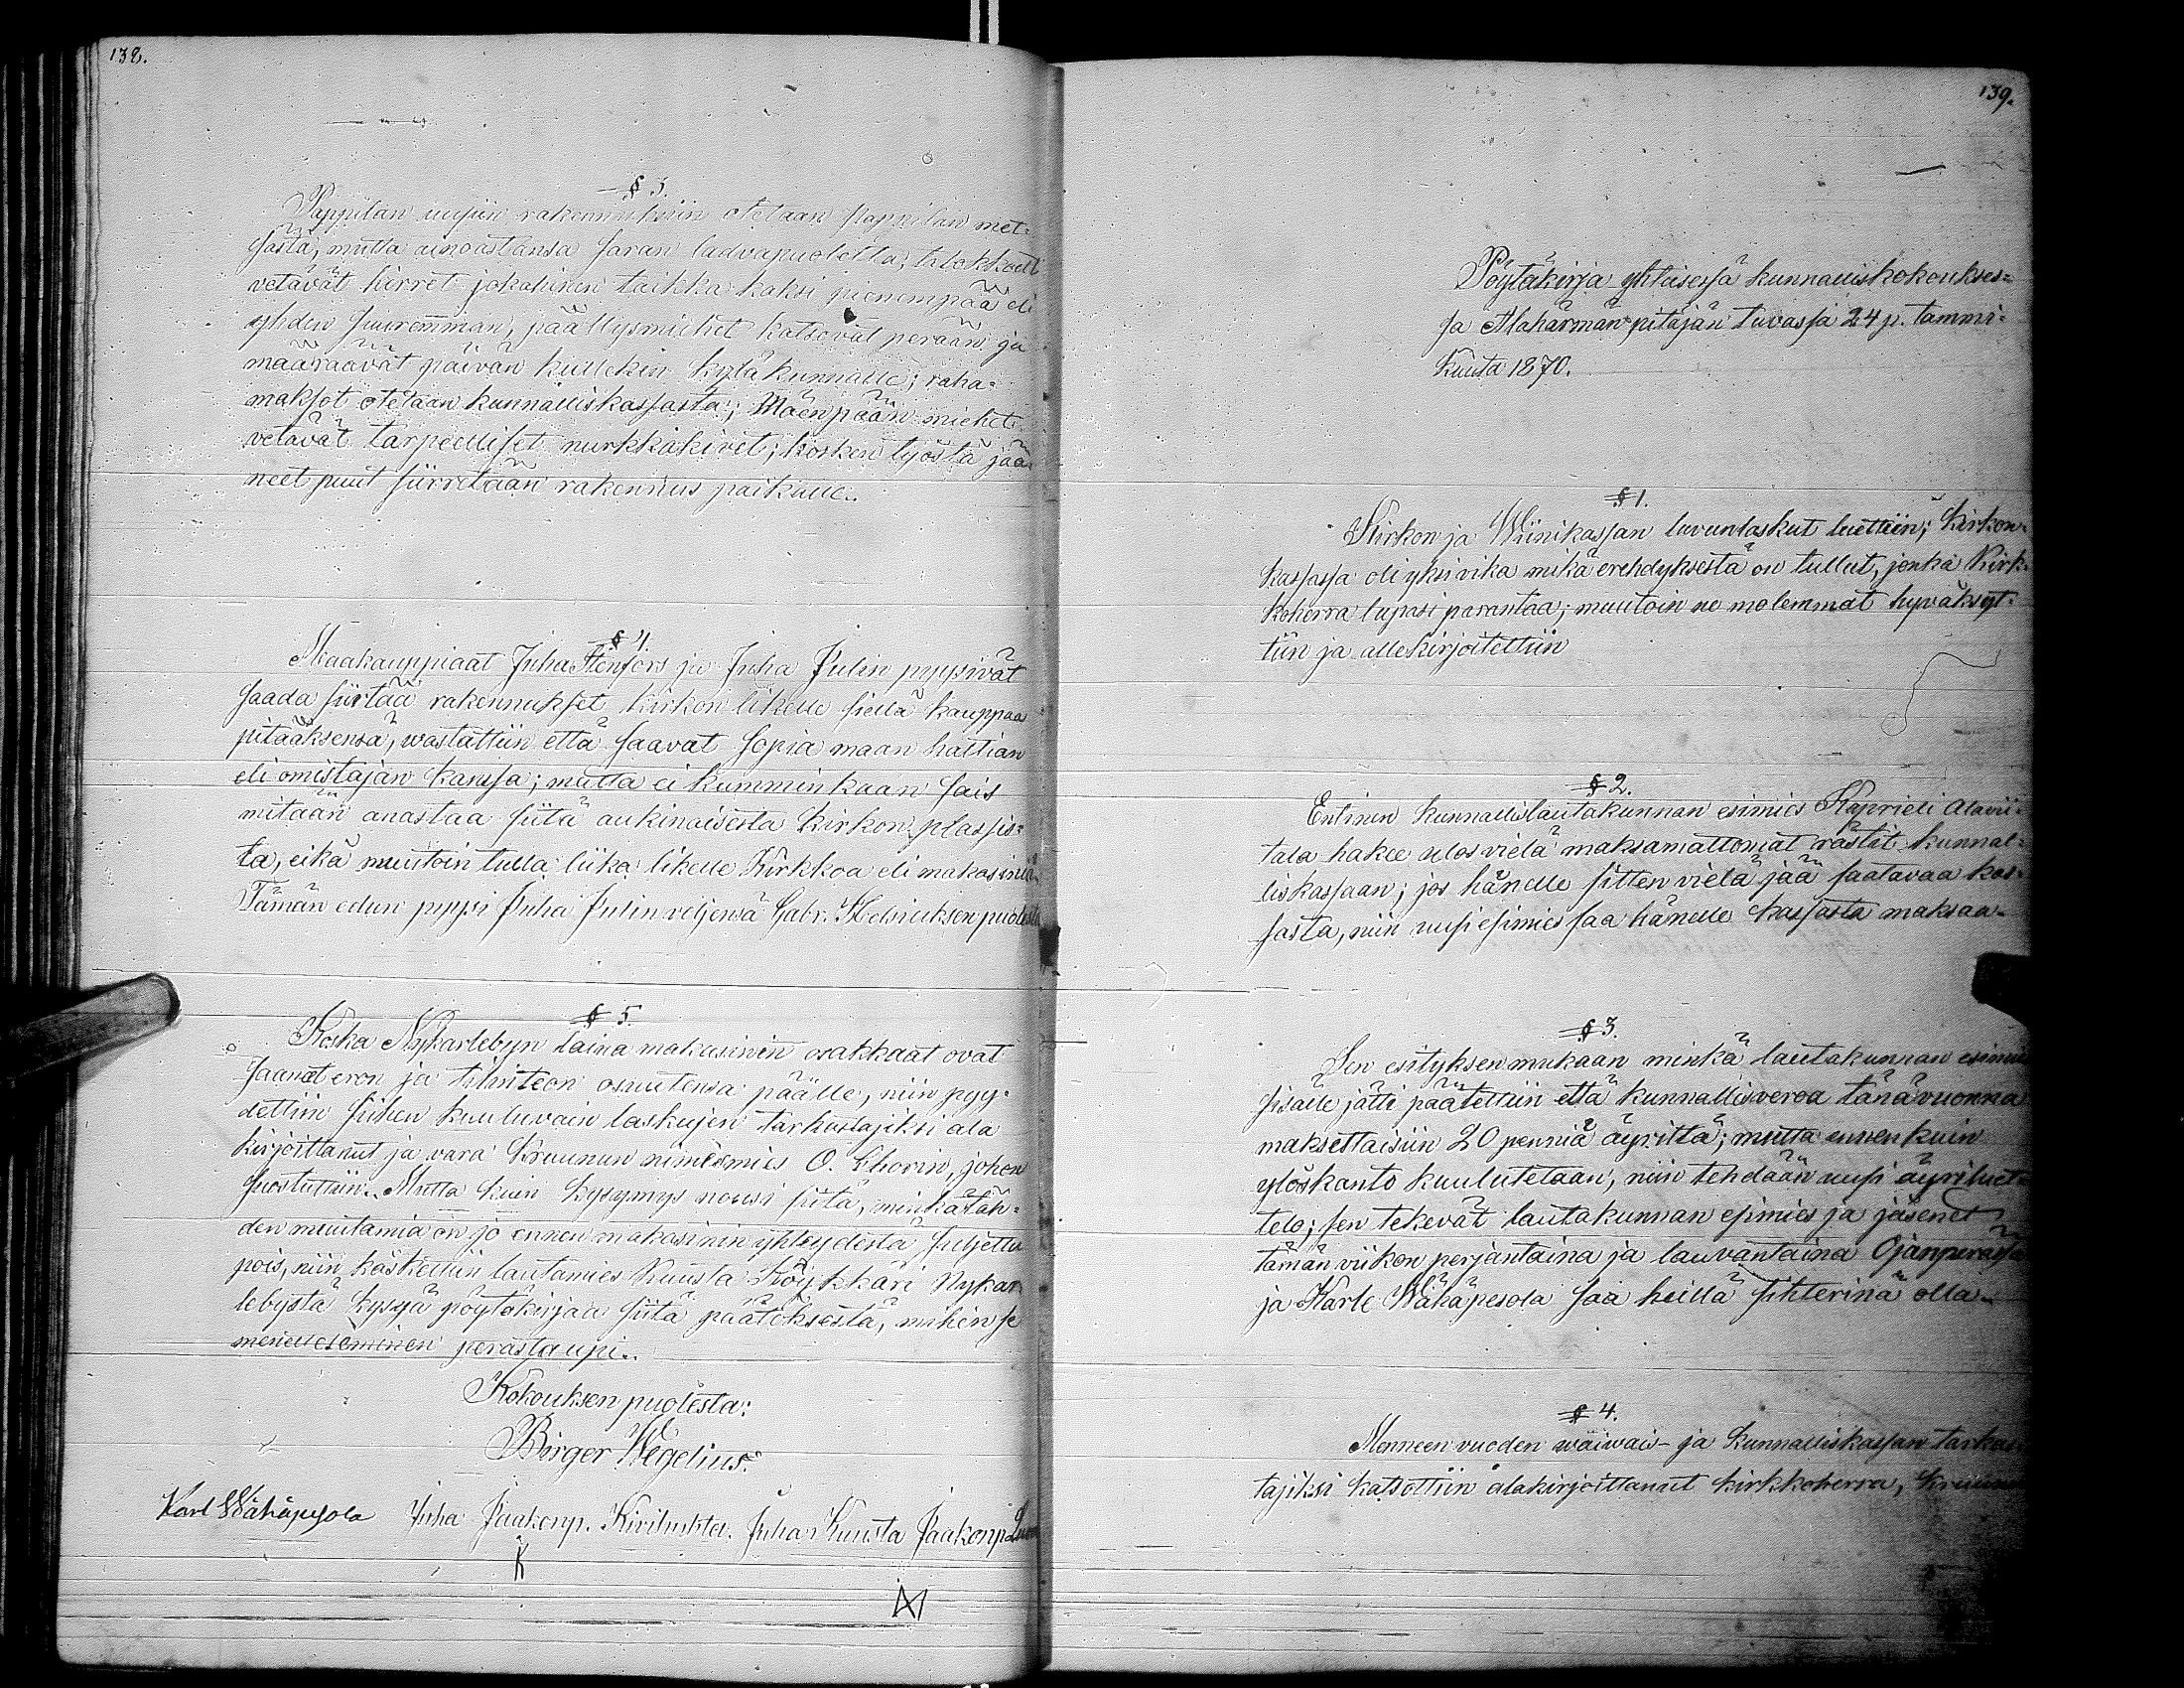 138.
§ 3.
Pappilan uusiin rakennuksiin otetaan pappilan met-
sästä, mutta ainoastansa saran ladvapuolella;
vetävät hirret jokahinen taikka kaksi pienempää eli
yhden suuremman, päällysmiehet katsovat perään ja
määräävät päivän kullekin kyläkunnalle; raha-
maksot otetaan kunnalliskassasta; Mäenpään miehet
vetävät tarpeelliset nurkkakivet; kosken työstä jää-
neet puut siirretään rakennus paikalle.
§ 4.
Maakauppiaat Juha Stenfors ja Juha Julin pyysivät
saada siirtää rakennukset kirkon likelle siellä kauppaa
pitääksensä, wastattiin että saavat sopia maan haltian
eli omistajan kanssa; mutta ei kumminkaan sais
mitään anastaa siitä aukinaisesta kirkon plassis-
ta, eikä muutoin tulla liika likelle Kirkkoa eli makasiniä
Tämän edun pyysi Juha Julin veljensä Gabr. Helsiuksen puolesta
§ 5.
Koska Nykarlebyn laina makasinin osakkaat ovat
saanet eron ja tilinteon osuutensa päälle, niin pyy-
dettiin siihen kuuluvain laskujen tarkastajiksi ala
kirjoittanut ja vara Kruunun nimismies O. Thorin, johon
suostuttiin. Mutta kuin kysymys nousi siitä, minkätäh-
den muutamia on jo ennen makasinin yhteydestä suljettu
pois, niin käskettiin lautamies Kuusta Köykkäri Nykar-
lebystä kysyä pöytäkirjaa siitä päätöksestä, mihin se
menetteleminen perästaupi.
Kokouksen puolesta:
Birger Wegelius.
Karl Wähäpesola Juha Jaakonp. Kiviluhta. Juha Kuusta Jaakonp.
139.
Pöytäkirja yhteisessä kunnalliskokoukses-
sa Alahärmän pitäjän tuvassa 24 p. tammi-
kuuta 1870.
§ 1.
Kirkon ja Wiinikassan luvunlaskut luettiin; kirkon-
kassassa oli yksi vika mikä erehdyksestä on tullut, jonka Kirk-
koherra lupasi parantaa; muutoin ne molemmat hyväksyt-
tiin ja allekirjoitettiin
§ 2.
Entinen kunnallislautakunnan esimies Kaprieli Alavii-
tala hakee ulos vielä maksamattomat rästit kunnal-
liskassaan; jos hänelle sitten vielä jää saatavaa kas-
sasta, niin uusi esimies saa hänelle kassasta maksaa.
§ 3.
Sen esityksen mukaan minkä lautakunnan esimies
sisälle jätti päätettiin että kunnallisveroa tänä vuonna
maksettaisiin 20 penniä äyriltä; mutta ennenkuin
ylöskanto kuulutetaan, niin tehdään uusi äyriluet-
telo; sen tekevät lautakunnan esimies ja jäsenet
tämän viikon perjantaina ja lauvantaina Ojanperässä
ja Karle Wähäpesola saa heillä sihterinä olla.
§ 4.
Menneen vuoden wäiwais- ja kunnalliskassan tarkas-
tajiksi katsottiin alakirjoittanut kirkkoherra,